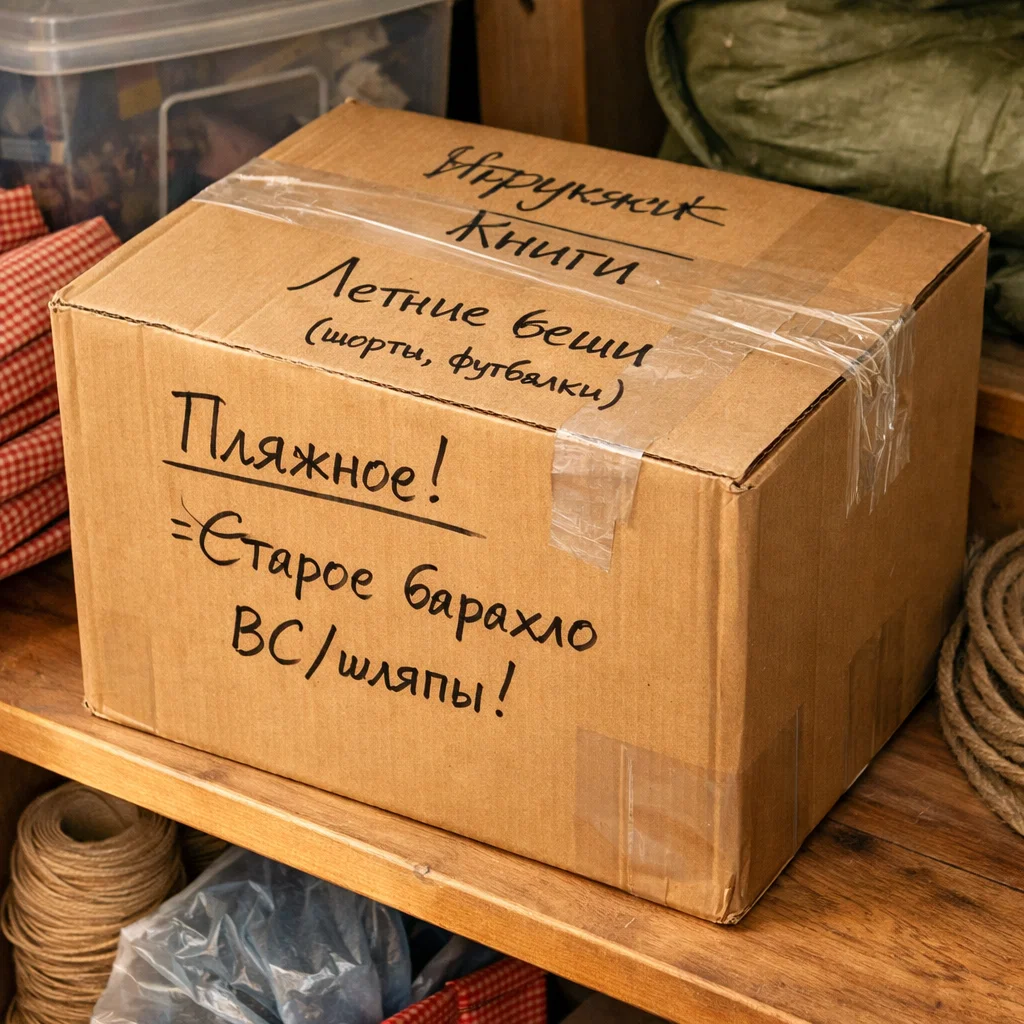 Книги
Летние беши
(шорты, футбалки)
Пляжное!
=Старое барахло
ВС/шляпы!